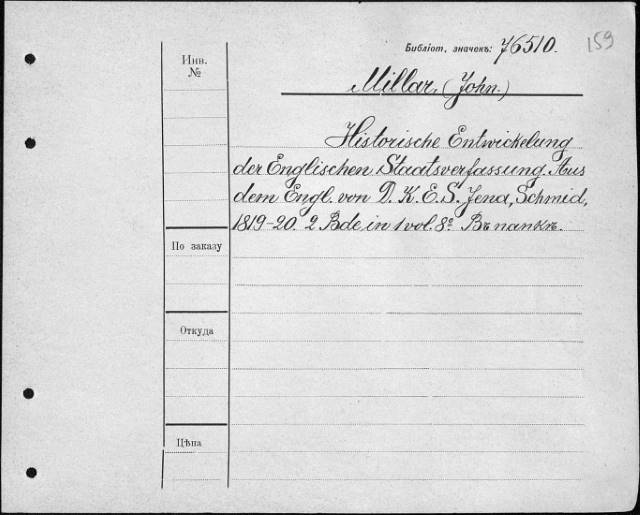 Библіот. значекъ: 76510. 159
Инв. №
Millar, (John.)
Historische Entwickelung
der Englischen Staatsverfassung. Aus
dem Engl. von D. K. E. S. Jena, Schmid,
1819-20. 2 Bde in 1 vol. 8º Въ папкѣ.
По заказу
Откуда
Цѣна